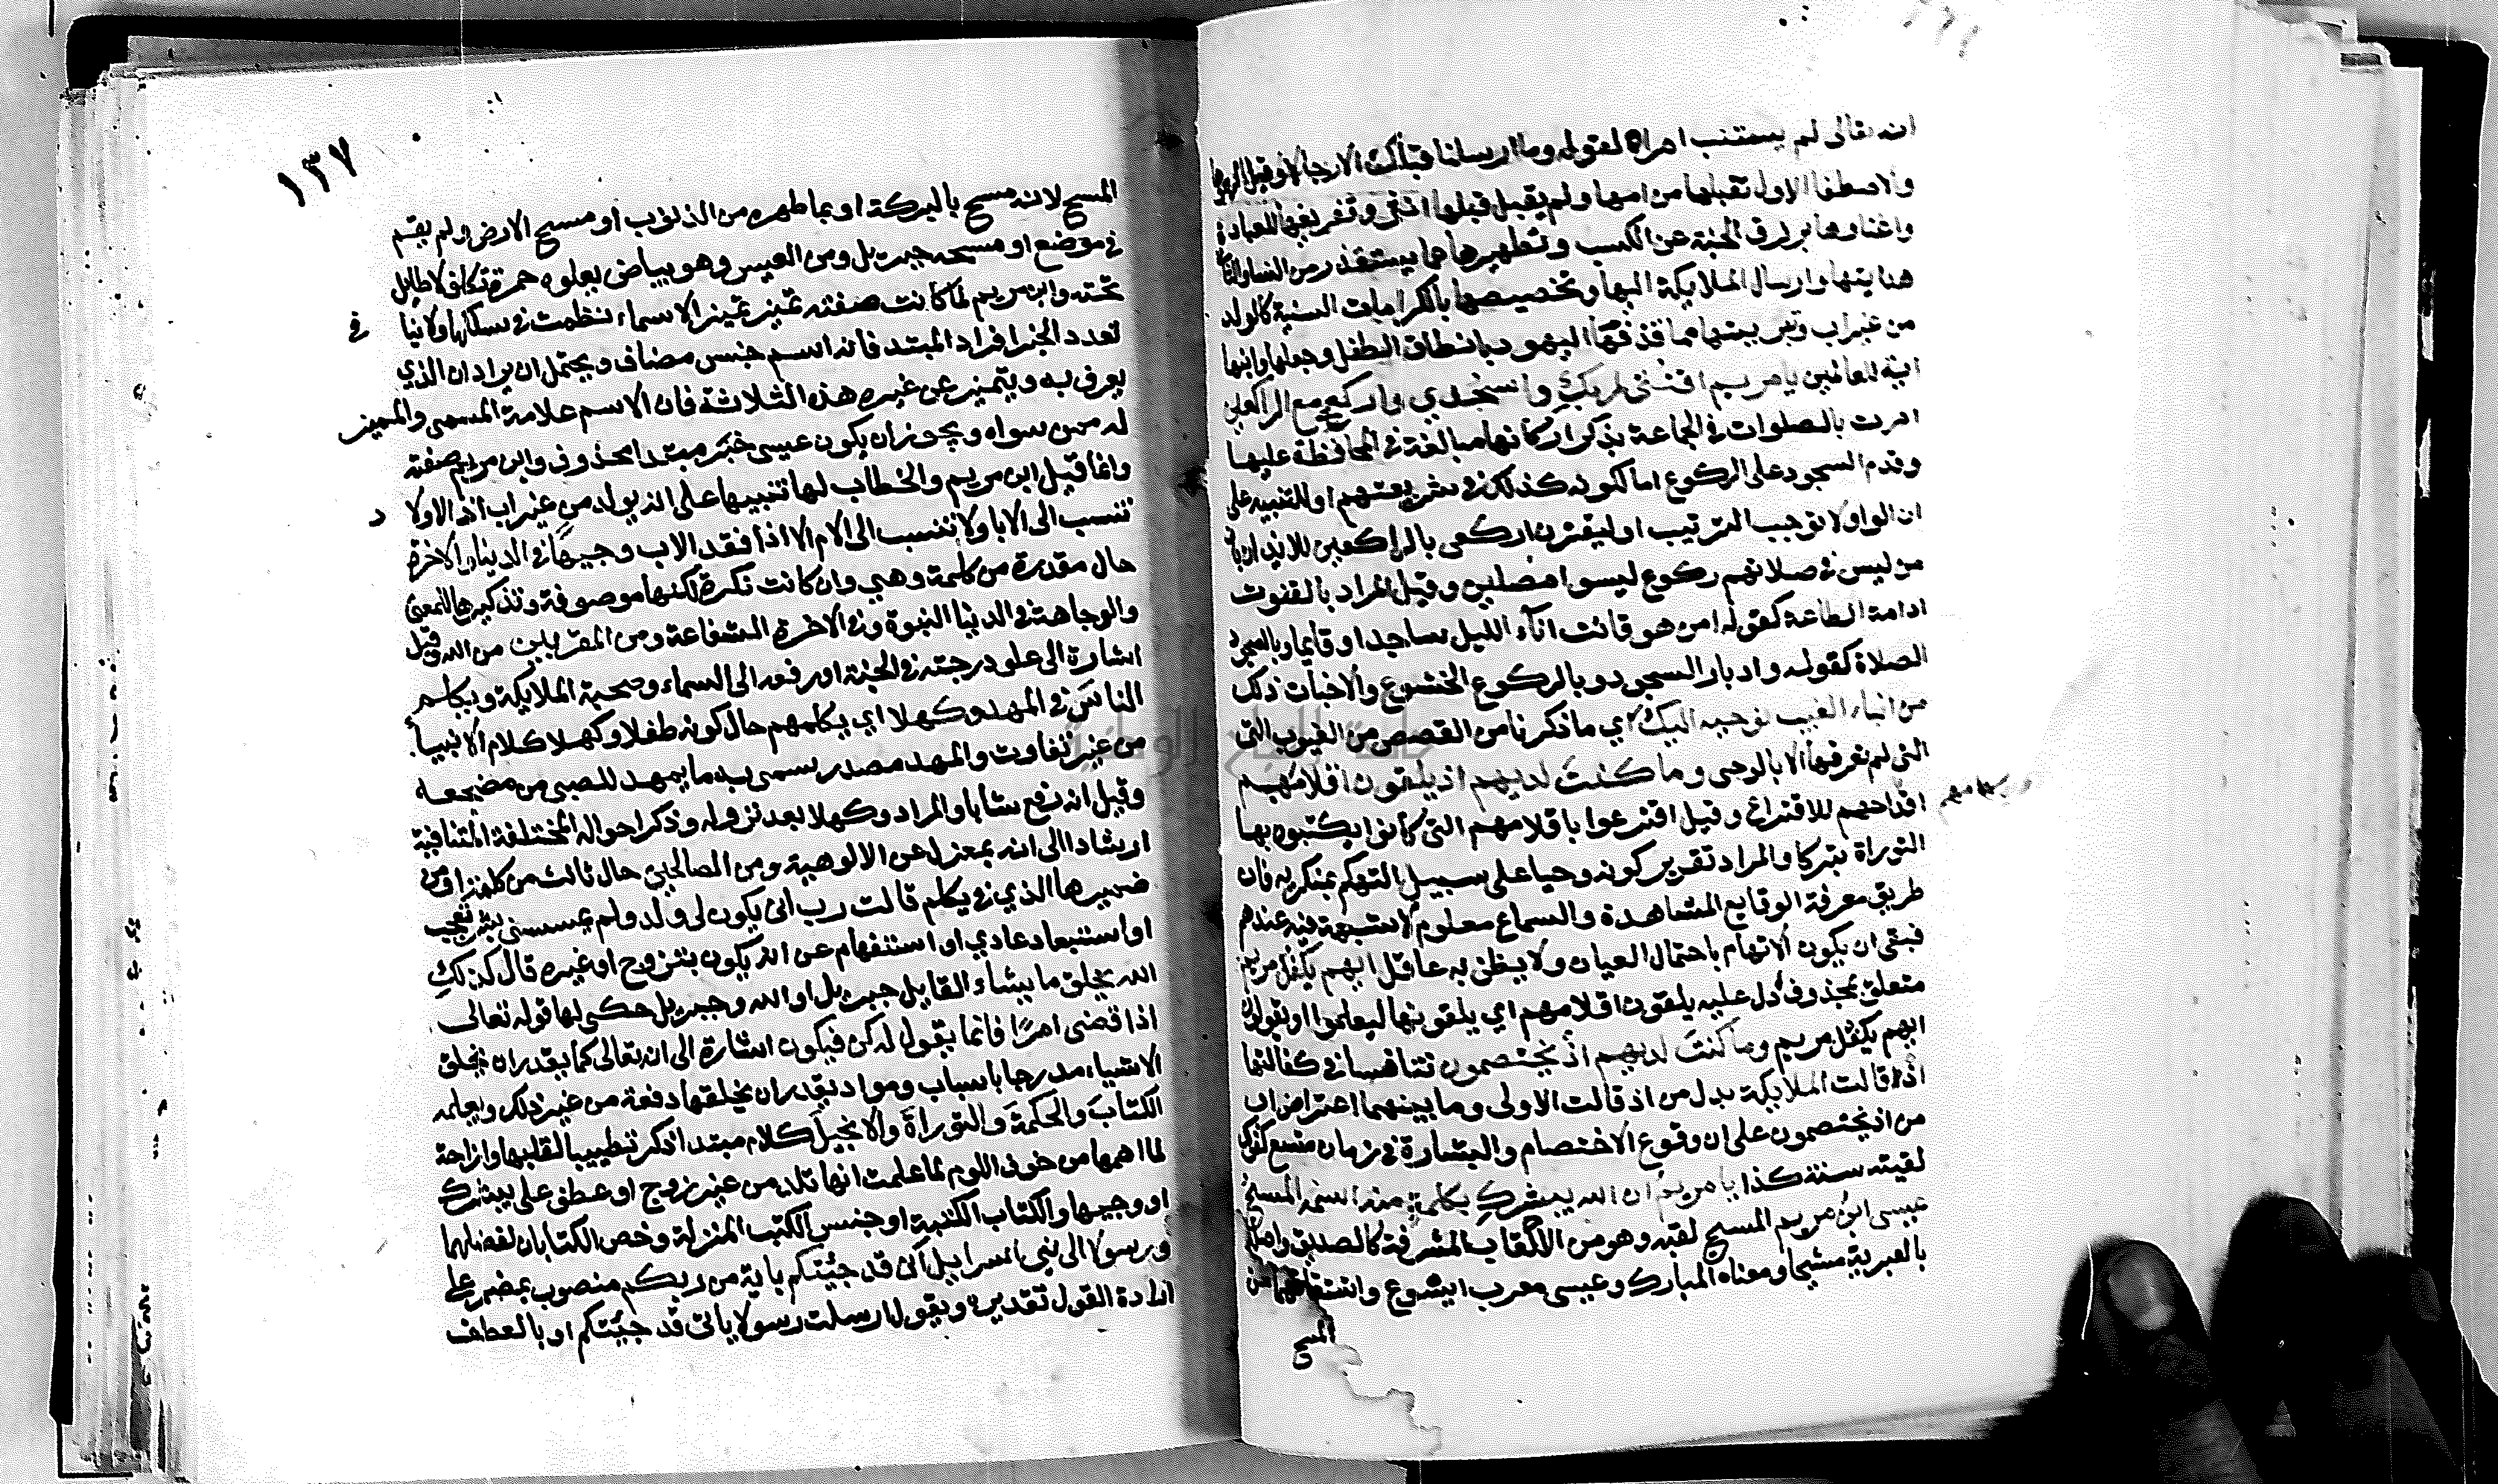 انه تعالى لم يستنب امراة لقوله وما ارسلنا قبلك الا رجالا وقيل الهموها
والاصطفا الاول تقبلها من امها ولم يقبل قبلها انثى وتفريغها للعبادة
واغناوها برزق الجنة عن الكسب وتطهيرها مما يستقذر من النسا والثانى
هدايتها وارسال الملايكة اليها وتخصيصها بالكرامات السنية كالولد
من غير اب وتبريتها مما قذفتها اليهود بانطاق الطفل وجعلها وابنها
اية للعالمين يا مريم اقنتى لربك واسجدي واركعي مع الراكعين
امرت بالصلوات في الجماعة بذكر اركانها مبالغة في المحافظة عليها
وقدم السجود على الركوع اما لكونه كذلك في شريعتهم او للتنبيه على
ان الواو لا توجب الترتيب او ليقترن اركعى بالراكعين للايذان بان
من ليس في صلاتهم ركوع ليسوا مصلين وقيل المراد بالقنوت
ادامة الطاعة كقوله امن هو قانت اناء الليل ساجدا وقايما وبالسجود
الصلاة كقوله وادبار السجود وبالركوع الخشوع والاخبات ذلك
من انباء الغيب نوحيه اليك اي ما ذكرنا من القصص من الغيوب التى
التى لم تعرفها الا بالوحى وما كنت لديهم اذ يلقون اقلامهم
اقداحهم للاقتراع وقيل اقترعوا باقلامهم التى كانوا يكتبون بها
التوراة تبركا والمراد تقرير كونه وحيا على سبيل التهكم بمنكريه فان
طريق معرفة الوقايع المشاهدة والسماع معلوم لا شبهة فيه عندهم
فبقى ان يكون الاتهام باحتمال العيان ولا يظن به عاقل ايهم يكفل مريم
متعلق بمحذوف دل عليه يلقون اقلامهم اي يلقونها ليعلموا او يقولوا
ايهم يكفل مريم وما كنت لديهم اذ يختصمون تنافسا في كفالتها
اذ قالت الملايكة بدل من اذ قالت الاولى وما بينهما اعتراض او
من اذ يختصمون على ان وقوع الاختصام والبشارة في زمان متسع كقولك
لقيته سنة كذا يا مريم ان الله يبشرك بكلمة منه اسمه المسيح
عيسى ابن مريم المسيح لقبه وهو من الالقاب المشرفة كالصديق واصله
بالعبرية مشيحا ومعناه المبارك وعيسى معرب ايشوع واشتقاقهما من
المسح
١٣٧
المسح لانه مسح بالبركة او بما طهره من الذنوب او مسح الارض ولم يقم
في موضع او مسحه جبريل ومن العيس وهو بياض يعلوه حمرة تكلف لا طايل
تحته وابن مريم لما كانت صفته تميز تميز الاسماء نظمت في سلكها ولا ينا
في
تعدد الخبر افراد المبتد فانه اسم جنس مضاف ويحتمل ان يراد ان الذي
يعرف به ويتميز عن غيره هذه الثلاثة فان الاسم علامة المسمى والمميز
له ممن سواه ويجوز ان يكون عيسى خبر مبتدا محذوف وابن مريم صفته
وانما قيل ابن مريم والخطاب لها تنبيها على انه يولد من غير اب اذ الاولا
د
تنسب الى الابا ولا تنسب الى الام الا اذا فقد الاب وجيها في الدنيا والاخرة
حال مقدرة من كلمة وهي وان كانت نكرة لكنها موصوفة وتذكيره للمعنى
والوجاهة في الدنيا النبوة وفي الاخرة الشفاعة ومن المقربين من الله وقيل
اشارة الى علو درجته في الجنة او رفعه الى السماء وصحبة الملايكة ويكلم
الناس في المهد وكهلا اي يكلمهم حال كونه طفلا وكهلا كلام الانبياء
من غير تفاوت والمهد مصدر سمى به ما يمهد للصبي من مضجعه
وقيل انه رفع شابا والمراد وكهلا بعد نزوله وذكر احواله المختلفة المتنافية
ارشادا الى انه بمعزل عن الالوهية ومن الصالحين حال ثالث من كلمة او من
ضميرها الذي في يكلم قالت رب انى يكون لى ولد ولم يمسسنى بشر تعجب
او استبعاد عادي او استفهام عن انه يكون بتزوج او غيره قال كذلك
الله يخلق ما يشاء القايل جبريل او الله وجبريل حكى لها قوله تعالى
اذا قضى امرا فانما يقول له كن فيكون اشارة الى انه تعالى كما يقدر ان يخلق
الاشياء مدرجا باسباب ومواد يقدر ان يخلقها دفعة من غير ذلك ويعلمه
الكتاب والحكمة والتوراة والانجيل كلام مبتدا ذكر تطييبا لقلبها وازاحة
لما اهمها من خوف اللوم لما علمت انها تلد من غير زوج او عطف على يبشرك
او وجيها والكتاب الكتبة او جنس الكتب المنزلة وخص الكتابان لفضلهما
ورسولا الى بنى اسرايل انى قد جئتكم باية من ربكم منصوب بمضمر على
ارادة القول تقديره ويقول ارسلت رسولا بانى قد جئتكم او بالعطف